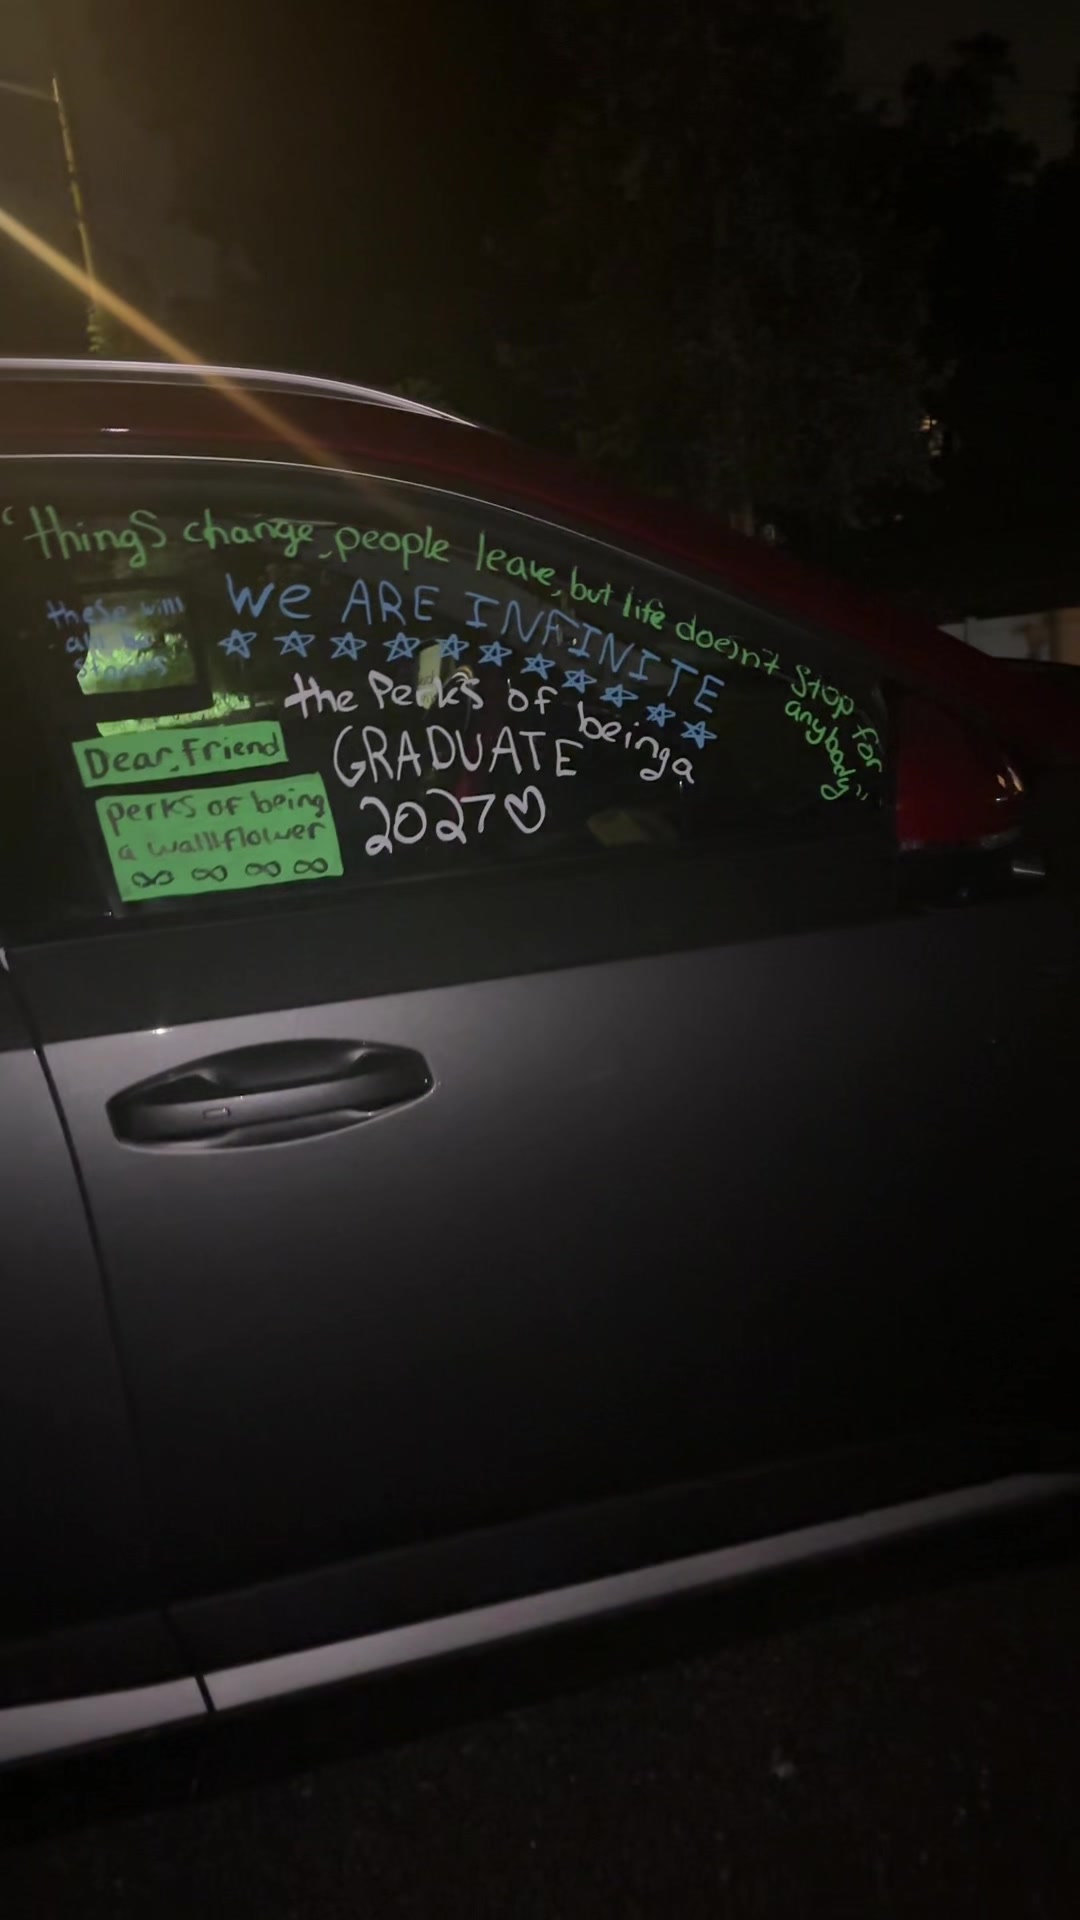 "things change, people leave, but life doesn't stop for
anybody"
We ARE INFINITE
these will
all be
stories
the Perks of being a
GRADUATE
2027♡
Dear, Friend
perks of being
a wallflower
∞ ∞ ∞ ∞